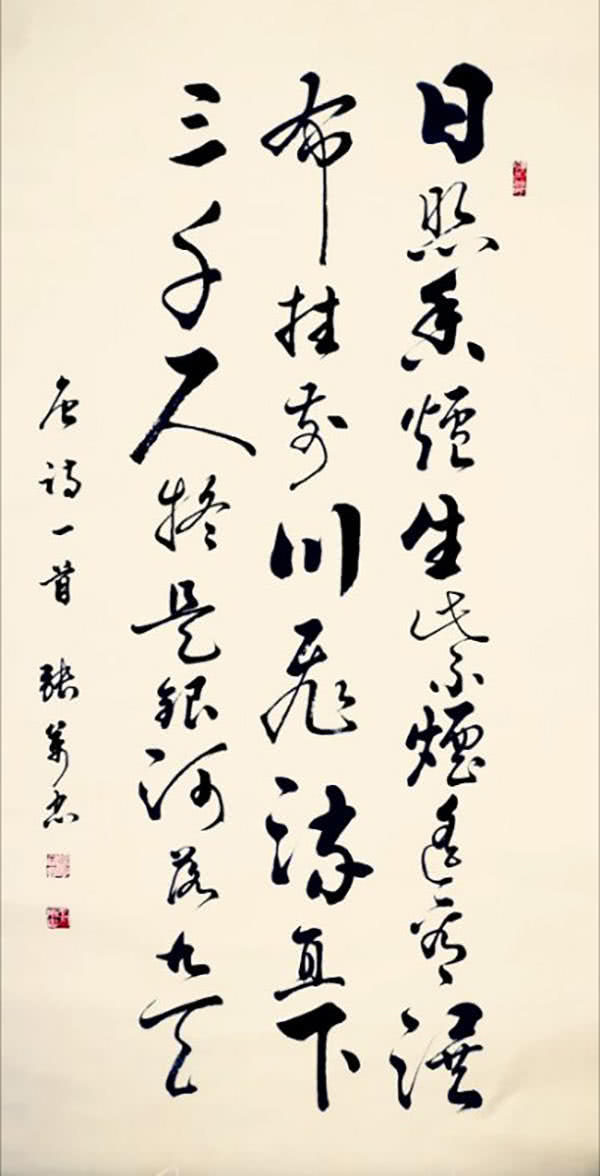 日照香爐生紫煙遙看瀑
布挂前川飛流直下
三千尺疑是銀河落九天
唐詩一首 張萬忠